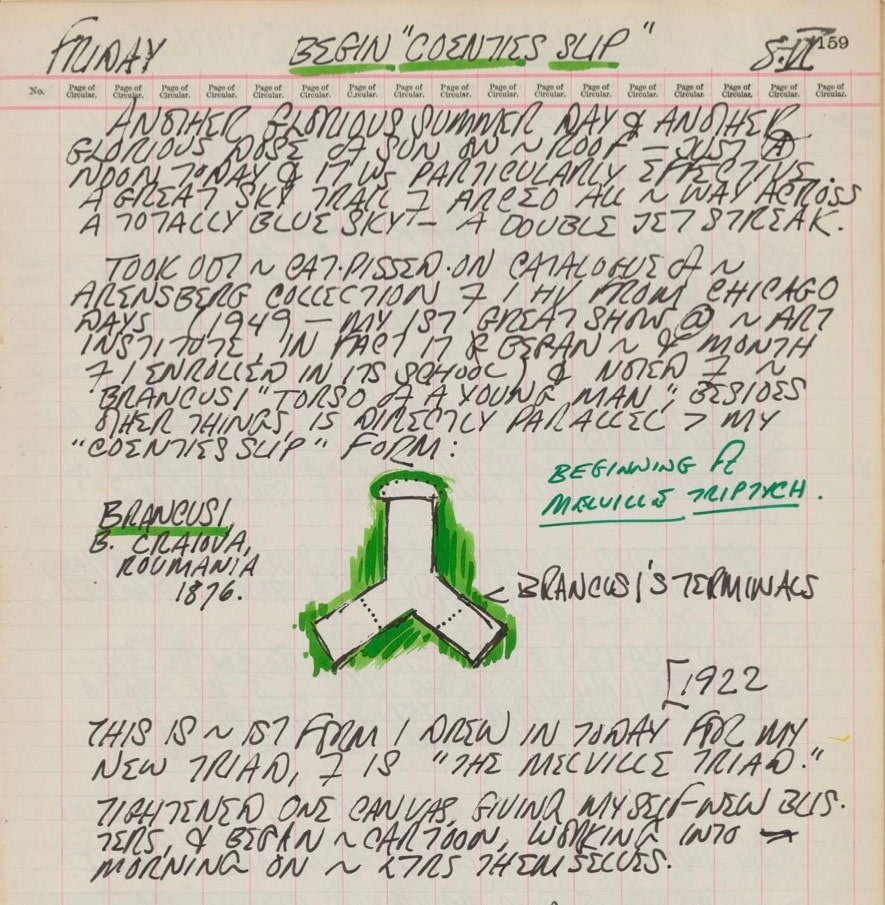 FRIDAY BEGIN "COENTIES SLIP" 8.VI 159
No. Page of Circular. Page of Circular. Page of Circular. Page of Circular. Page of Circular. Page of Circular. Page of Circular. Page of Circular. Page of Circular. Page of Circular. Page of Circular. Page of Circular. Page of Circular. Page of Circular. Page of Circular. Page of Circular. Page of Circular.
ANOTHER GLORIOUS SUMMER DAY & ANOTHER
GLORIOUS DOSE OF SUN ON ~ ROOF — JUST @
NOON TODAY & IT WS PARTICULARLY EFFECTIVE.
A GREAT SKY TRAIL 7 ARCED ALL ~ WAY ACROSS
A TOTALLY BLUE SKY — A DOUBLE JET STREAK.
TOOK OUT ~ CAT-PISSED-ON CATALOGUE OF ~
ARENSBERG COLLECTION 7 I HV FROM CHICAGO
DAYS (1949 — MY 1ST GREAT SHOW @ ~ ART
INSTITUTE, IN FACT IT BEGAN ~ MONTH
7 I ENROLLED IN ITS SCHOOL) & NOTED 7 ~
BRANCUSI "TORSO OF A YOUNG MAN", BESIDES
OTHER THINGS, IS DIRECTLY PARALLEL > MY
"COENTIES SLIP" FORM:
BEGINNING OF
MELVILLE TRIPTYCH.
BRANCUSI,
B. CRAIOVA,
ROUMANIA
1876.
< BRANCUSI'S TERMINALS
[1922
THIS IS ~ 1ST FORM I DREW IN TODAY FOR MY
NEW TRIAD, 7 IS "THE MELVILLE TRIAD."
TIGHTENED ONE CANVAS, GIVING MYSELF NEW BLIS-
TERS, & BEGAN ~ CARTOON, WORKING INTO ~
MORNING ON ~ LTRS THEMSELVES.